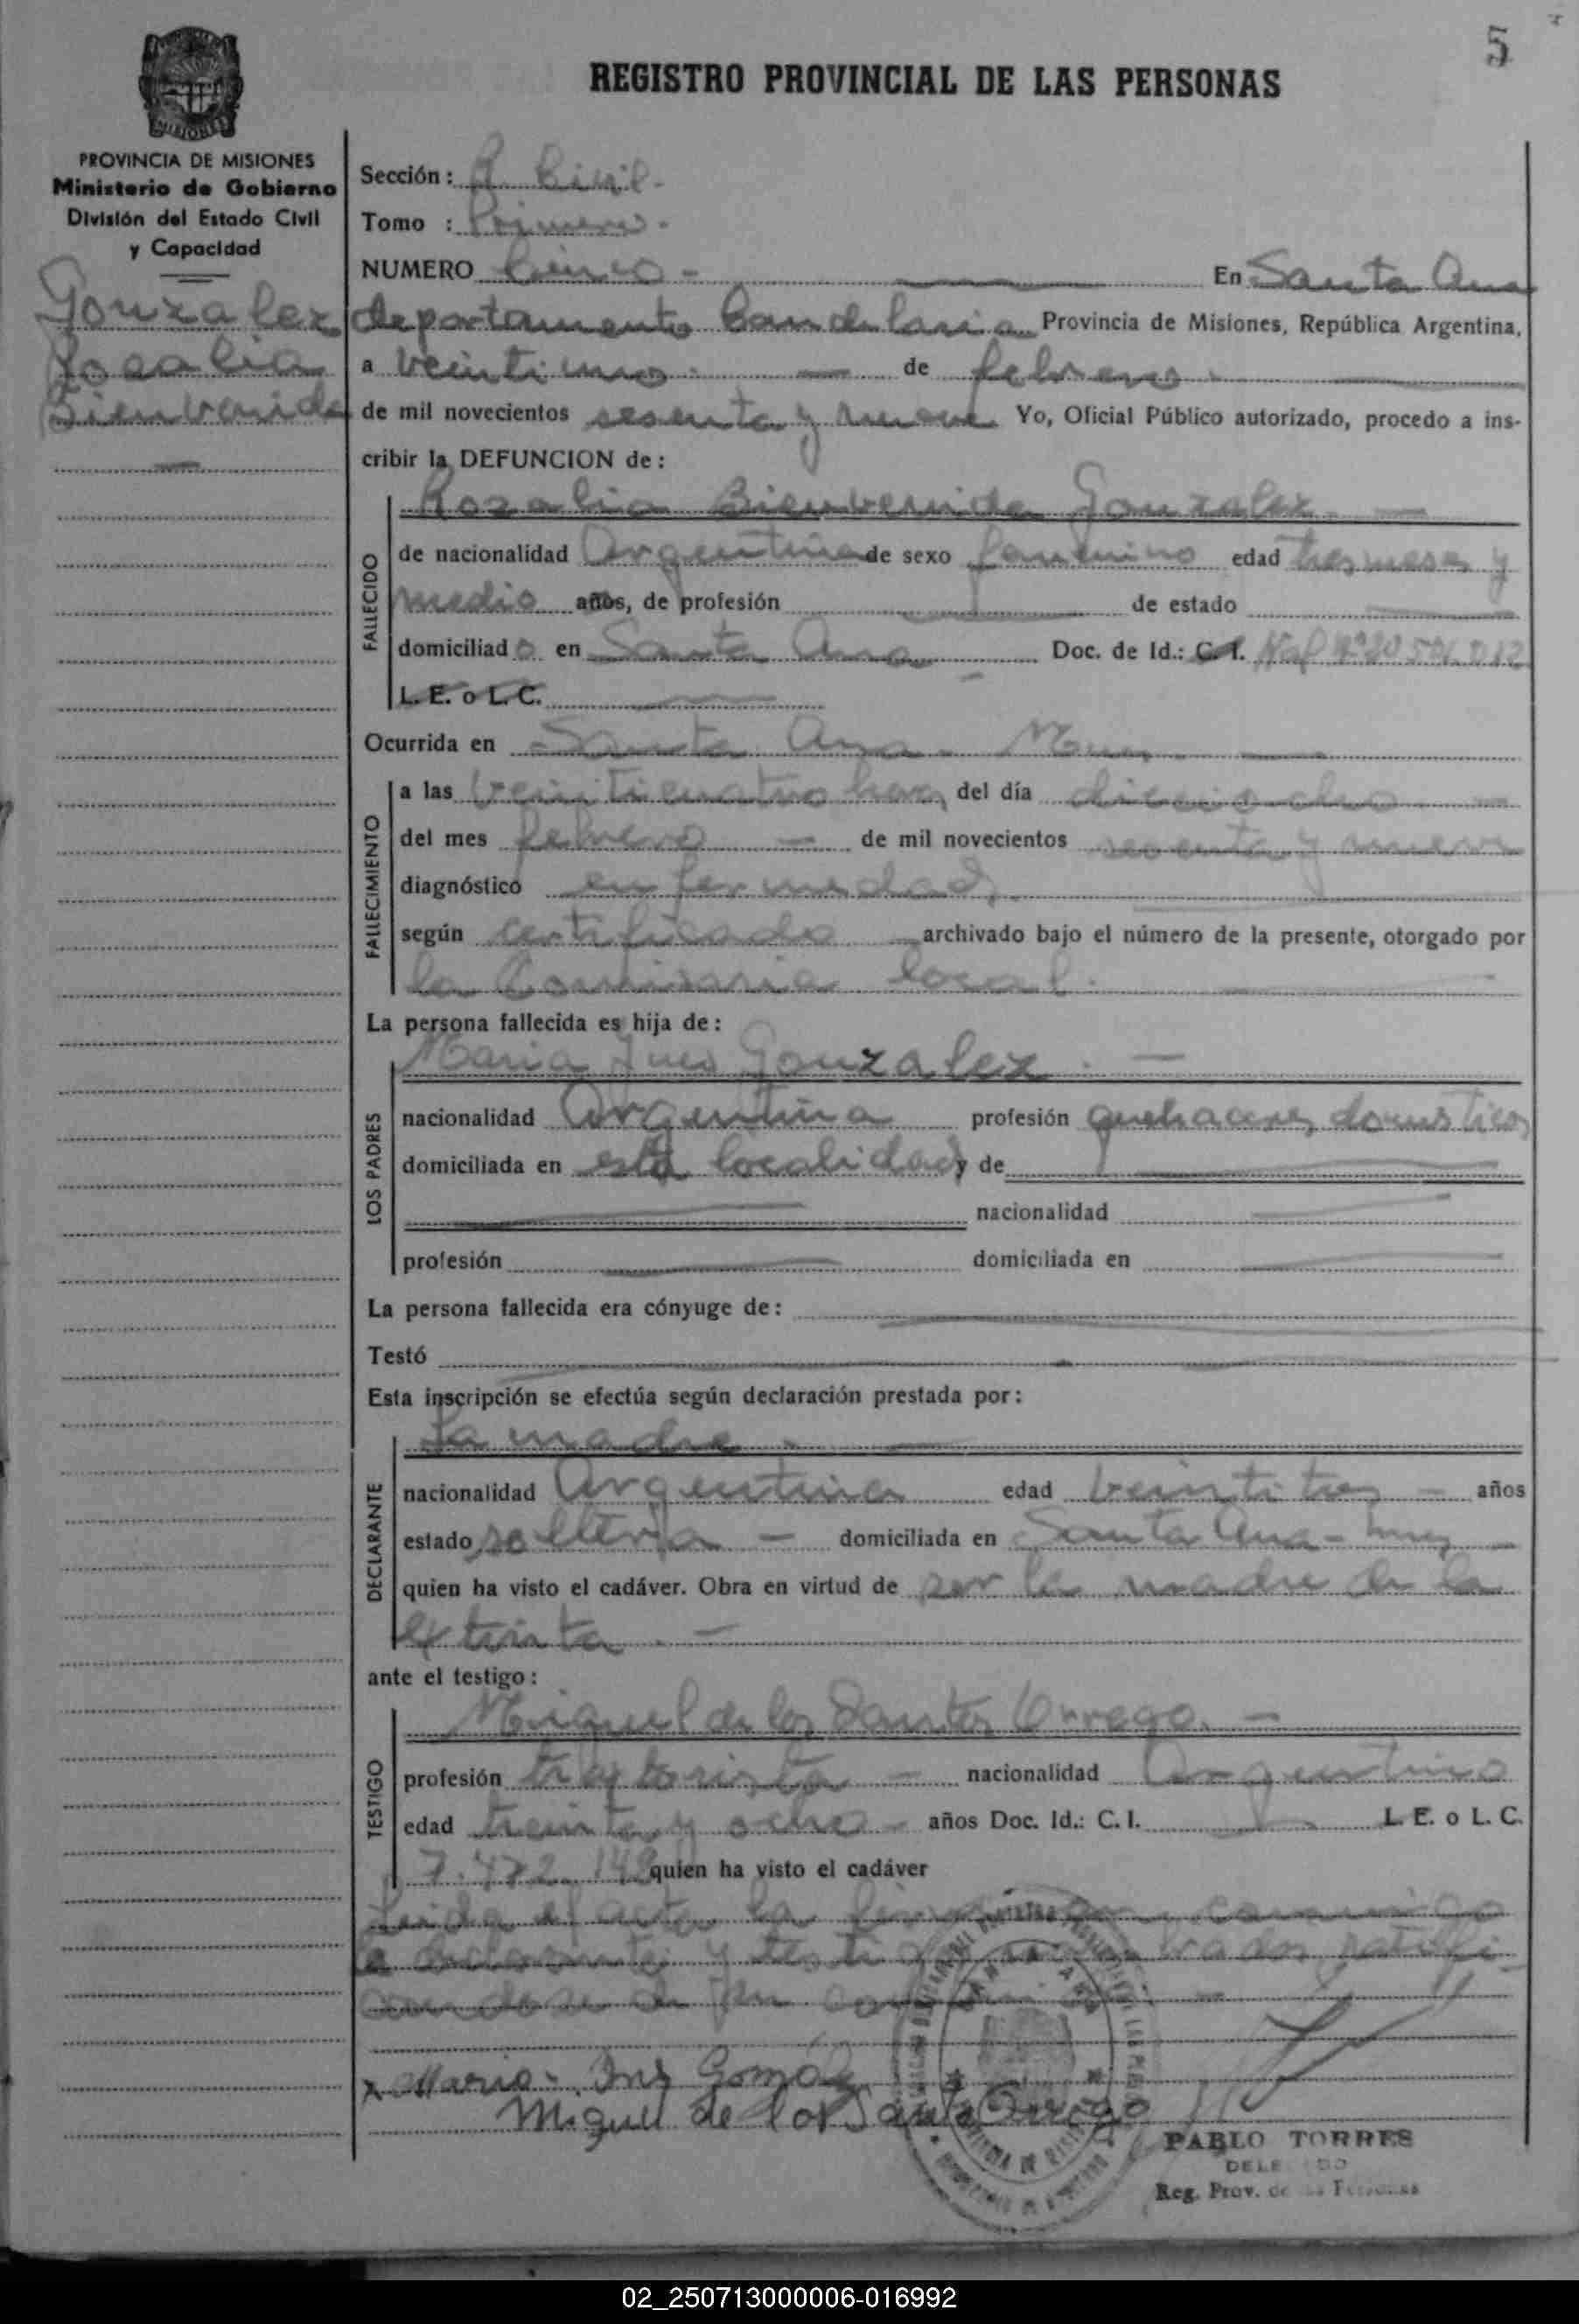 5
REGISTRO PROVINCIAL DE LAS PERSONAS
MISIONES
PROVINCIA DE MISIONES
Ministerio de Gobierno
División del Estado Civil
y Capacidad
Gonzalez
Rosalia
Bienvenida
Sección: R. Civil.-
Tomo : Primero.-
NUMERO Cinco - En Santa Ana
departamento Candelaria Provincia de Misiones, República Argentina,
a veintiuno de febrero.
de mil novecientos sesenta y nueve Yo, Oficial Público autorizado, procedo a ins-
cribir la DEFUNCION de:
FALLECIDO
Rozalia Bienvenida Gonzalez.
de nacionalidad Argentina de sexo femenino edad tres meses y
medio años, de profesión de estado
domiciliado en Santa Ana Doc. de Id.: C. I.
L. E. o L. C.
Ocurrida en Santa Ana.
FALLECIMIENTO
a las veinticuatro horas del día dieciocho
del mes febrero de mil novecientos sesenta y nueve
diagnóstico enfermedad
según certificado archivado bajo el número de la presente, otorgado por
la Comisaria local.
La persona fallecida es hija de:
LOS PADRES
Maria Ines Gonzalez.
nacionalidad Argentina profesión quehaceres domesticos
domiciliada en esta localidad y de
nacionalidad
profesión domiciliada en
La persona fallecida era cónyuge de:
Testó
Esta inscripción se efectúa según declaración prestada por:
DECLARANTE
La madre.
nacionalidad Argentina edad veintitres años
estado soltera domiciliada en Santa Ana -
quien ha visto el cadáver. Obra en virtud de ser la madre de la
extinta.
ante el testigo:
TESTIGO
Miguel de los Santos Orrego.
profesión nacionalidad Argentino
edad treinta y ocho años Doc. Id.: C. I. L. E. o L. C.
7.472.142 quien ha visto el cadáver
Leida el acta la firman conmigo
la declarante y testigo ratifi-
candose de su contenido.-
Maria Ines
Miguel de los Santos Orrego
PABLO TORRES
Reg. Prov. de las Personas
02_250713000006-016992